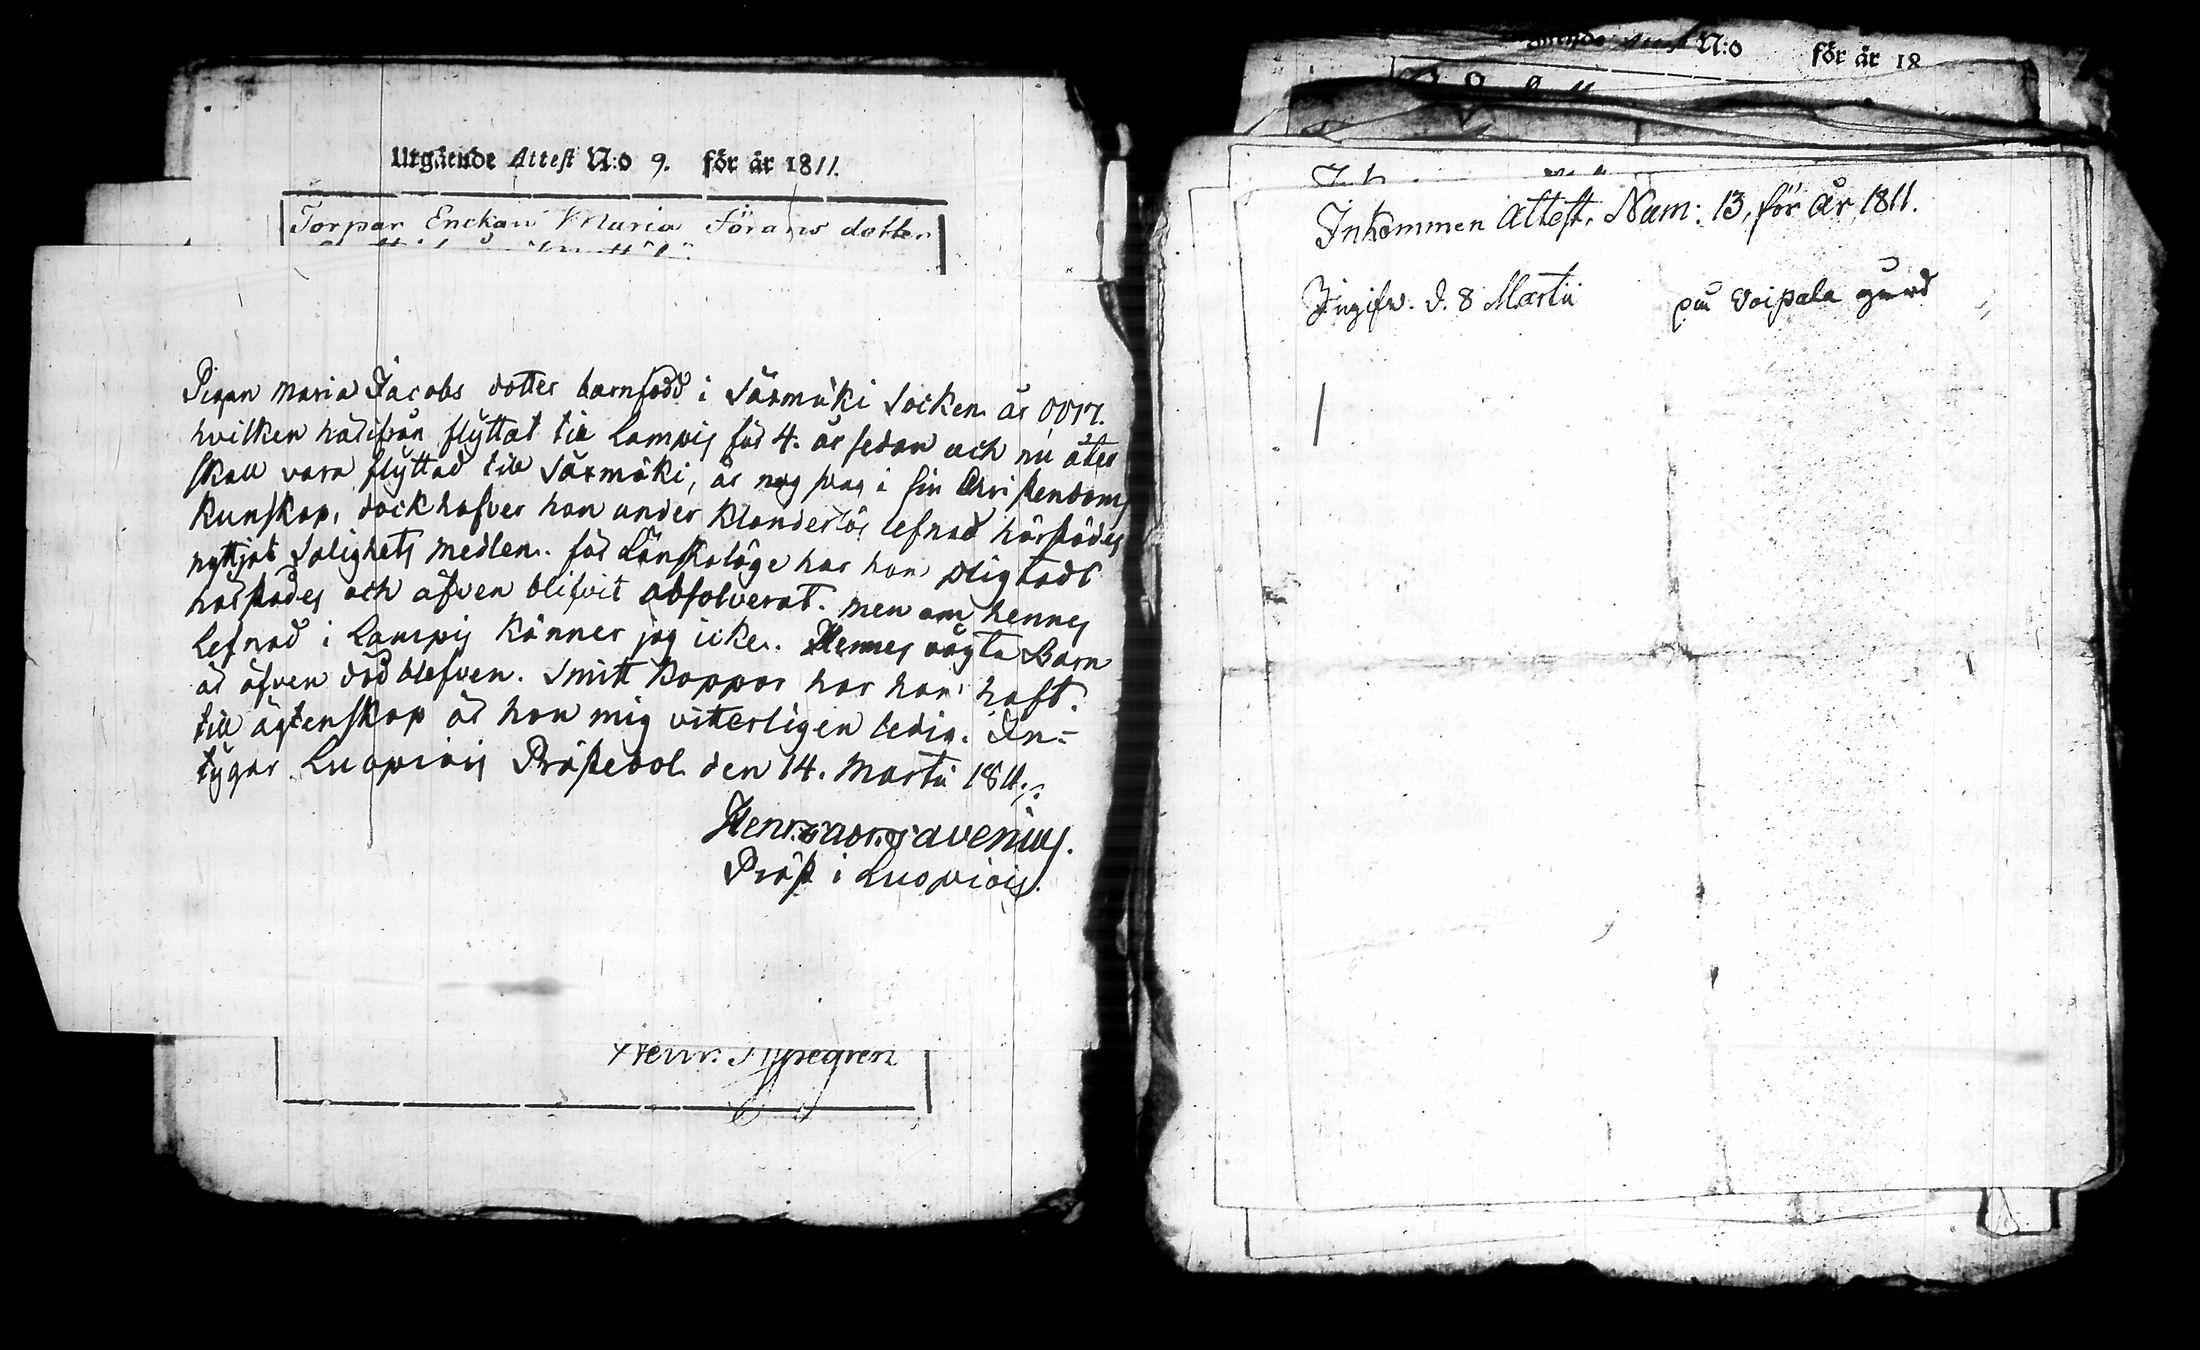 Utgående Attest N:o 9. för år 1811.
Torpar Enckan Maria Görans dotter
Pigan Maria Jacobs dotter barnfödd i Säxmäki Socken år
hvilken härifrån flyttat till Lampis för 4. år sedan och nu åter
skall vara flyttad till Säxmäki, är nog svag i sin Christendoms
kunskap, dock hafver hon under klanderlös lefnad härstädes
nyttjat Salighets medlen. för Lönskaläge har hon pligtadt
härstädes och äfven blifvit absolverat. men om hennes
lefnad i Lampis känner jag icke. Hennes oägta Barn
är äfven död blefven. Smitt koppor har hon haft.
till ägtenskap är hon mig vitterligen ledig. In-
tygar Luopiois Prästebol den 14. Martii 1811.
Henr. Avenius.
Präst i Luopiois.
Henr.
N:o för år 18
Inkommen Attest, Num: 13, för år 1811.
Ingifv. d. 8 Martii på Voipala gård